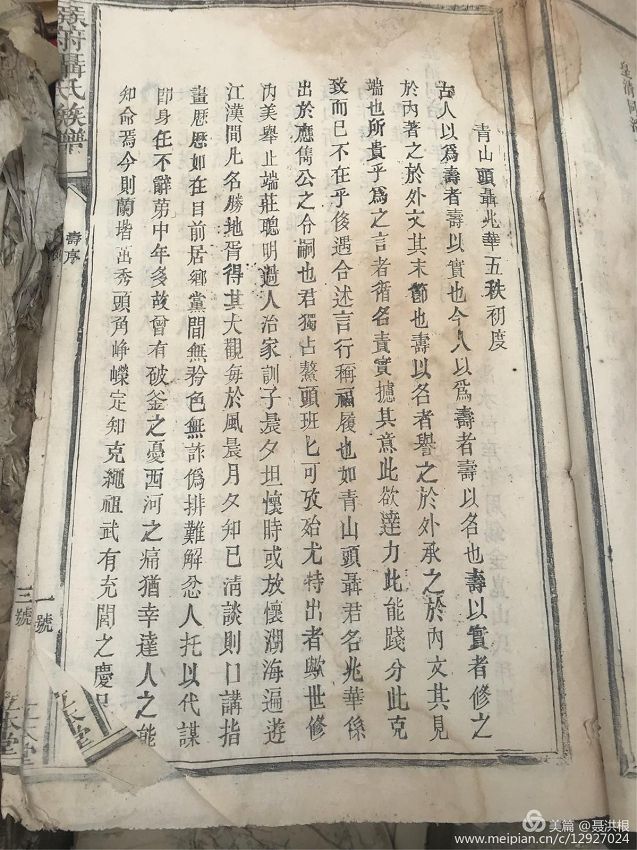 青山頭聶兆華五秩初度
古人以爲壽者壽以實也今人以爲壽者壽以名也壽以實者修之
於內著之於外文其末節也壽以名者譽之於外承之於內文其見
端也所貴乎爲之言者循名責實攄其意此欲達力此能踐分此克
致而已不在乎後遇合述言行稱福履也如青山頭聶君名兆華係
出於應儁公之分嗣也君獨占鰲頭班匕可攷始尤特出者歟世修
內美舉止端莊聰明過人治家訓子晨夕坦懷時或放懷湖海遍遊
江漢間凡名勝地胥得其大觀每於風晨月夕知已清談則口講指
畫歷歷如在目前居鄉黨間無矜色無詐僞排難解忿人托以代謀
即身任不辭苐中年多故曾有破釜之憂西河之痛猶幸達人之能
知命焉今則蘭堦茁秀頭角崢嶸定知克繩祖武有充閭之慶
聶氏族譜
壽序
一號
三號
美篇 @聂洪根
www.meipian.cn/c/12927024